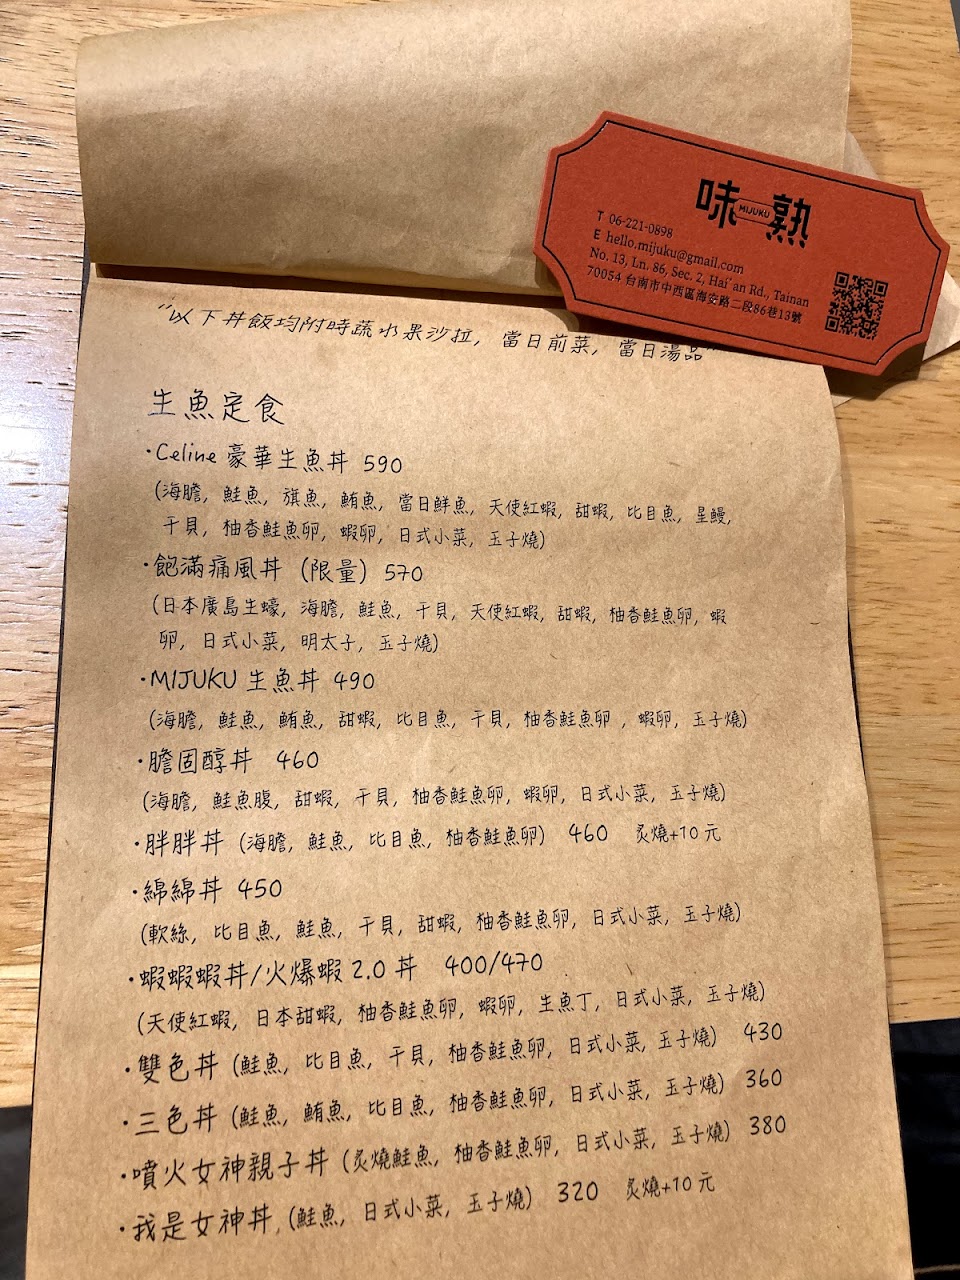 味熟
MIJUKU
T 06-221-0898
E hello.mijuku@gmail.com
No. 13, Ln. 86, Sec. 2, Hai'an Rd., Tainan
70054 台南市中西區海安路二段86巷13號
"以下丼飯均附時蔬水果沙拉, 當日前菜, 當日湯品"
生魚定食
·Celine 豪華生魚丼 590
(海膽, 鮭魚, 旗魚, 鮪魚, 當日鮮魚, 天使紅蝦, 甜蝦, 比目魚, 星鰻,
干貝, 柚香鮭魚卵, 蝦卵, 日式小菜, 玉子燒)
·飽滿痛風丼 (限量) 570
(日本廣島生蠔, 海膽, 鮭魚, 干貝, 天使紅蝦, 甜蝦, 柚香鮭魚卵, 蝦
卵, 日式小菜, 明太子, 玉子燒)
·MIJUKU 生魚丼 490
(海膽, 鮭魚, 鮪魚, 甜蝦, 比目魚, 干貝, 柚香鮭魚卵 , 蝦卵, 玉子燒)
·膽固醇丼 460
(海膽, 鮭魚腹, 甜蝦, 干貝, 柚香鮭魚卵, 蝦卵, 日式小菜, 玉子燒)
·胖胖丼 (海膽, 鮭魚, 比目魚, 柚香鮭魚卵) 460 炙燒+10元
·綿綿丼 450
(軟絲, 比目魚, 鮭魚, 干貝, 甜蝦, 柚香鮭魚卵, 日式小菜, 玉子燒)
·蝦蝦蝦丼/火爆蝦 2.0 丼 400/470
(天使紅蝦, 日本甜蝦, 柚香鮭魚卵, 蝦卵, 生魚丁, 日式小菜, 玉子燒)
·雙色丼 (鮭魚, 比目魚, 干貝, 柚香鮭魚卵, 日式小菜, 玉子燒) 430
·三色丼 (鮭魚, 鮪魚, 比目魚, 柚香鮭魚卵, 日式小菜, 玉子燒) 360
·噴火女神親子丼 (炙燒鮭魚, 柚香鮭魚卵, 日式小菜, 玉子燒) 380
·我是女神丼 (鮭魚, 日式小菜, 玉子燒) 320 炙燒+10元